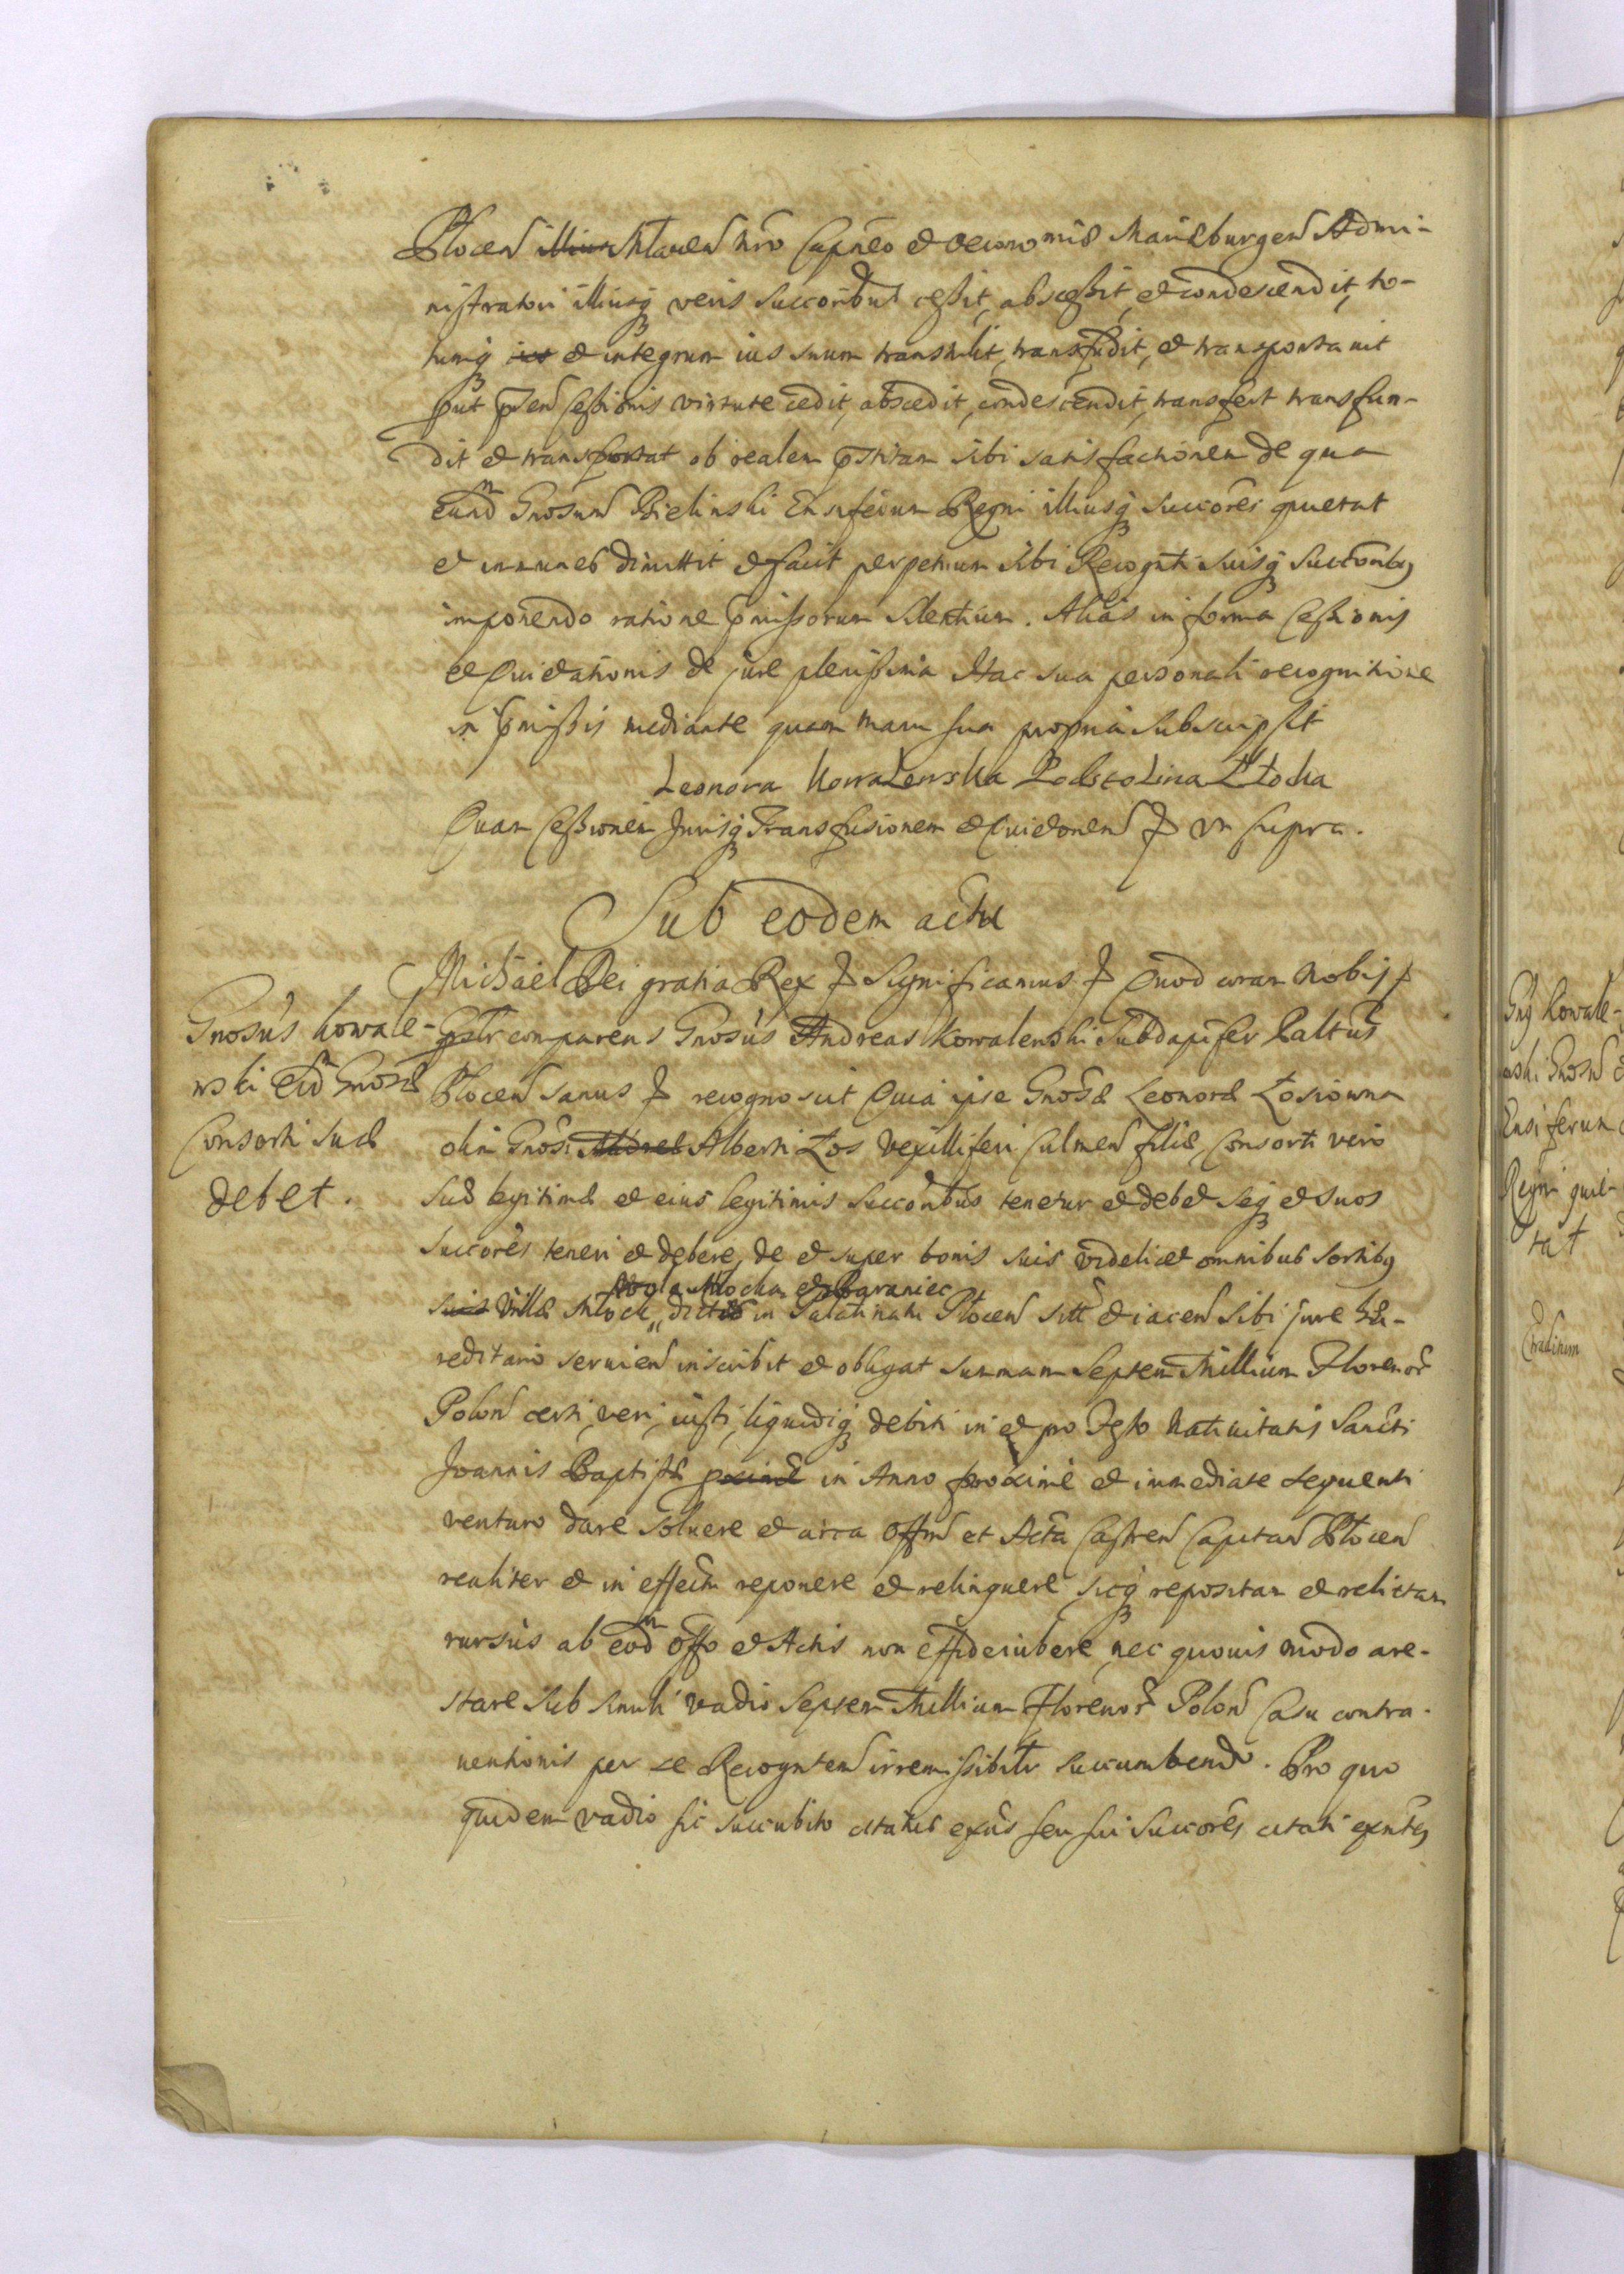 Plocen Mlaven nro Capneo et oeconomiæ Mariæburgen Admi-
nistratori illiusq veris Succoribus cessit, abscessit, et condescendit, to-
tumq ius et integrum ius suum transtulit, transfudit, et transportavit
put pnten Cessionis virtute cedit, abscedit, condescendit, transfert transfun-
dit et transportat ob realem pstitam sibi satisfactionem de qua
eundm Gnosum Bielinski Ensiferum Regni illiusq Succores quietat
et immunes dimittit et facit perpetuum sibi Recognti suisq Succoribus
imponendo ratione pmissorum silentium. Alias in forma Cessionis
et Quietationis de jure plenissima Hac sua personali recognitione
in pmissis mediante quam manu sua propria subscripsit
Leonora Kowalewska Podstolina Płocka
Quam Cessionem Jurisq Transfusionem et Quietonem p ut supra.
Sub eodem actu
Michael Dei gratia Rex p Significamus p Quod coram Nobis p
Gnosus Kowale-
wski eidm Gnosæ
Consorti suæ
debet.
psltr comparens Gnosus Andreas Kowalewski Subdapifer Palttus
Plocen sanus p recognoscit Quia ipse Gnosæ Leonoræ Łosiowna
olim Gnosi Alberti Łos Vexilliferi Culmen filiæ, Consorti vero
suæ legitimæ et eius legitimis Succoribus tenetur et debet seq et suos
Succores teneri et debere, de et super bonis suis videlicet omnibus sortibus
Wola Mlocka et Baraniec
suis Villæ Mlock dictis in Palatinatu Plocen sitt et iacen sibi jure hæ-
reditario servien inscribit et obligat summam Septem Millium Florenor
Polon certi, veri, iusti, liquidiq debiti in et pro Festo Nativitatis Sancti
Joannis Baptistæ proximè in Anno proximè et immediate sequenti
venturo dare solvere et circa Offm et Acta Castren Capitan Plocen
realiter et in effectu reponere et relinquere sicq repositam et relictam
rursus ab eodm Offo et Actis non effideiubere, nec quovis modo are-
stare sub simili vadio Septem Millium Florenor Polon Casu contra-
ventionis per se Recognten irremissibiltr succumbendo. Pro quo
quidem vadio sic succubito citatus exns seu sui Succores citati exntes
Gnus Kowale-
wski Gnosm
Ensiferum
Regni quie-
tat